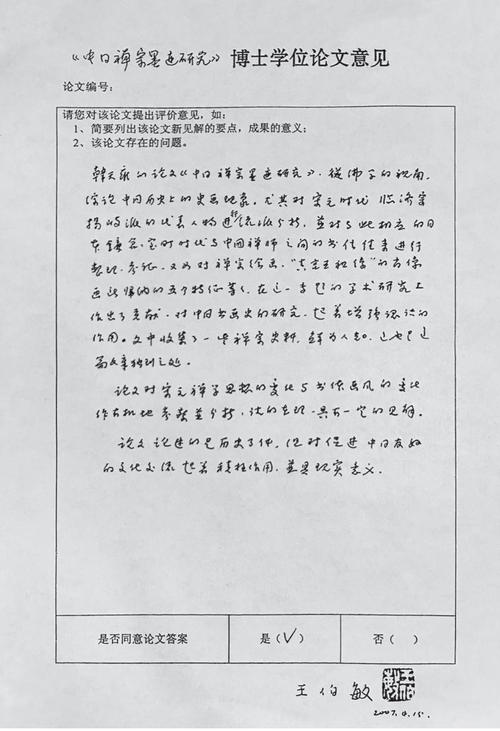 《中日禅宗墨迹研究》博士学位论文意见
论文编号:
请您对该论文提出评价意见，如:
1、简要列出该论文新见解的要点，成果的意义;
2、该论文存在的问题。
韩天雍的论文《中日禅宗墨迹研究》，从佛学的视角，
综论中日历史上的书画现象。尤其对宋元时代临济宗
杨岐派的代表人物进行流派分析，并对与此相应的日
本镰仓、室町时代与中国禅师之间的书信往来进行
整理、考证。又如对禅宗绘画，
画迹归纳的五个特征等，在这一条的学术研究上
作出了贡献，对中日书画史的研究，起着增强认识的
作用。文中收集了一些禅宗史料，鲜为人知，这也是这
篇文章独到之处。
论文对宋元禅学思想的变化与书体画风的变化
作有机地参察并分析，谈的在理，具有一定的见解。
论文论述的是历史文化，但对促进中日友好
的文化交流起着积极作用，并具现实意义。
是否同意论文答案
是(√)
否( )
王伯敏
2007.4.15.